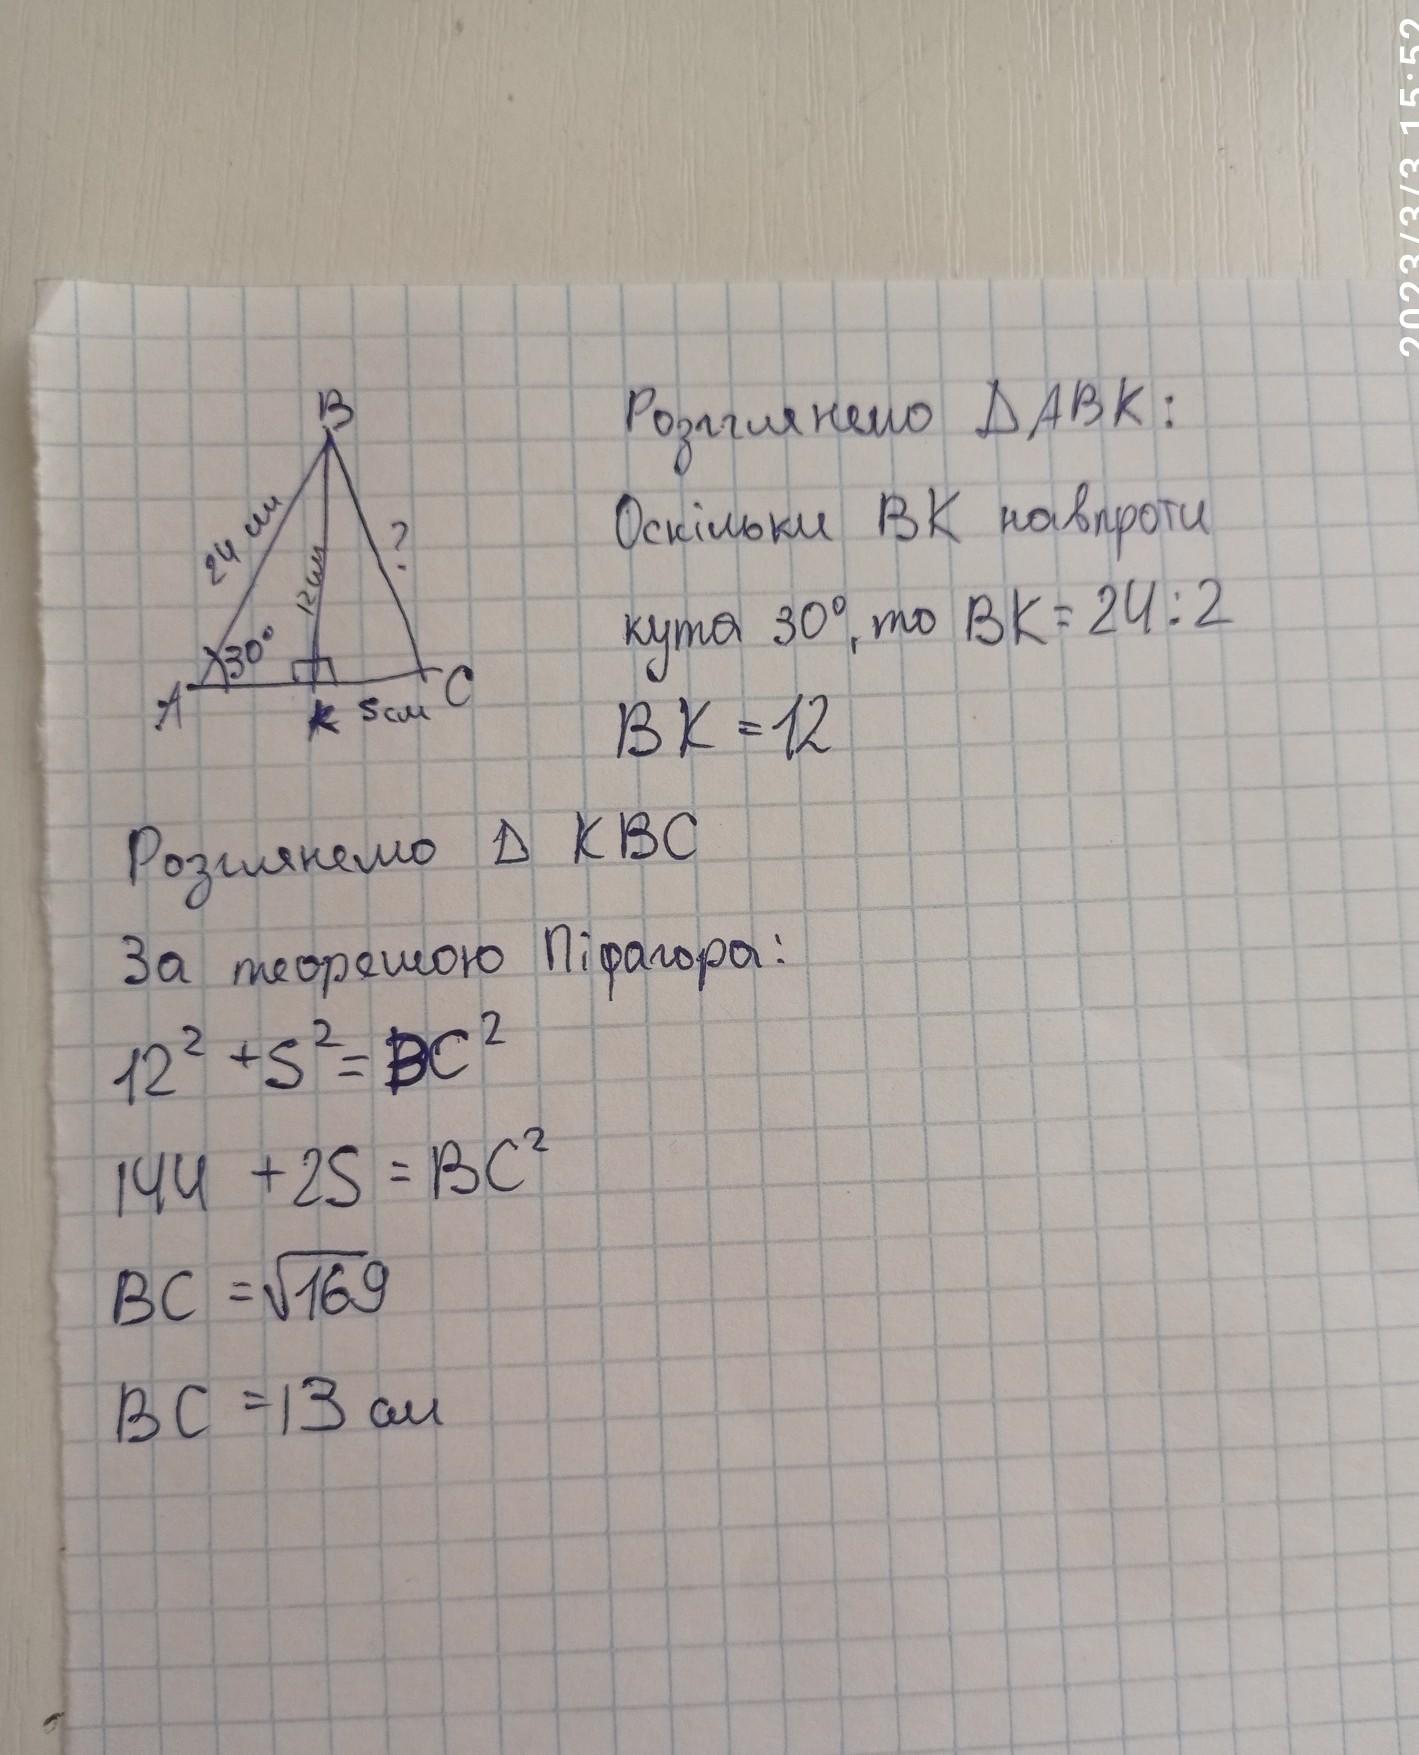 2023/3/3 15:52
B
24 см
12см
?
30°
A
K
5см
C
Розглянемо ΔABK:
Оскільки BK навпроти
кута 30°, то BK = 24:2
BK = 12
Розглянемо Δ KBC
За теоремою Піфагора:
12² + 5² = BC²
144 + 25 = BC²
BC = √169
BC = 13 см